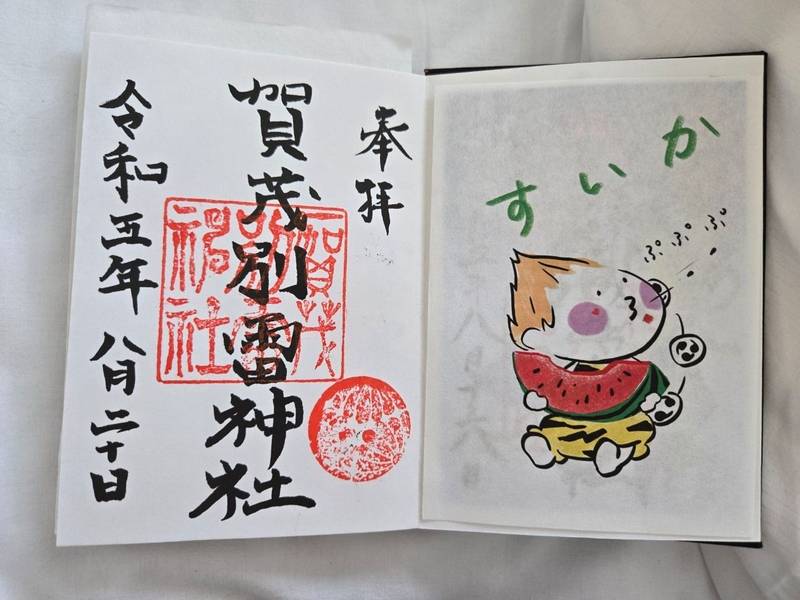 奉拝
賀茂別雷神社
賀茂
別雷
神社
令和五年八月二十日
すいか
ぷぷぷ